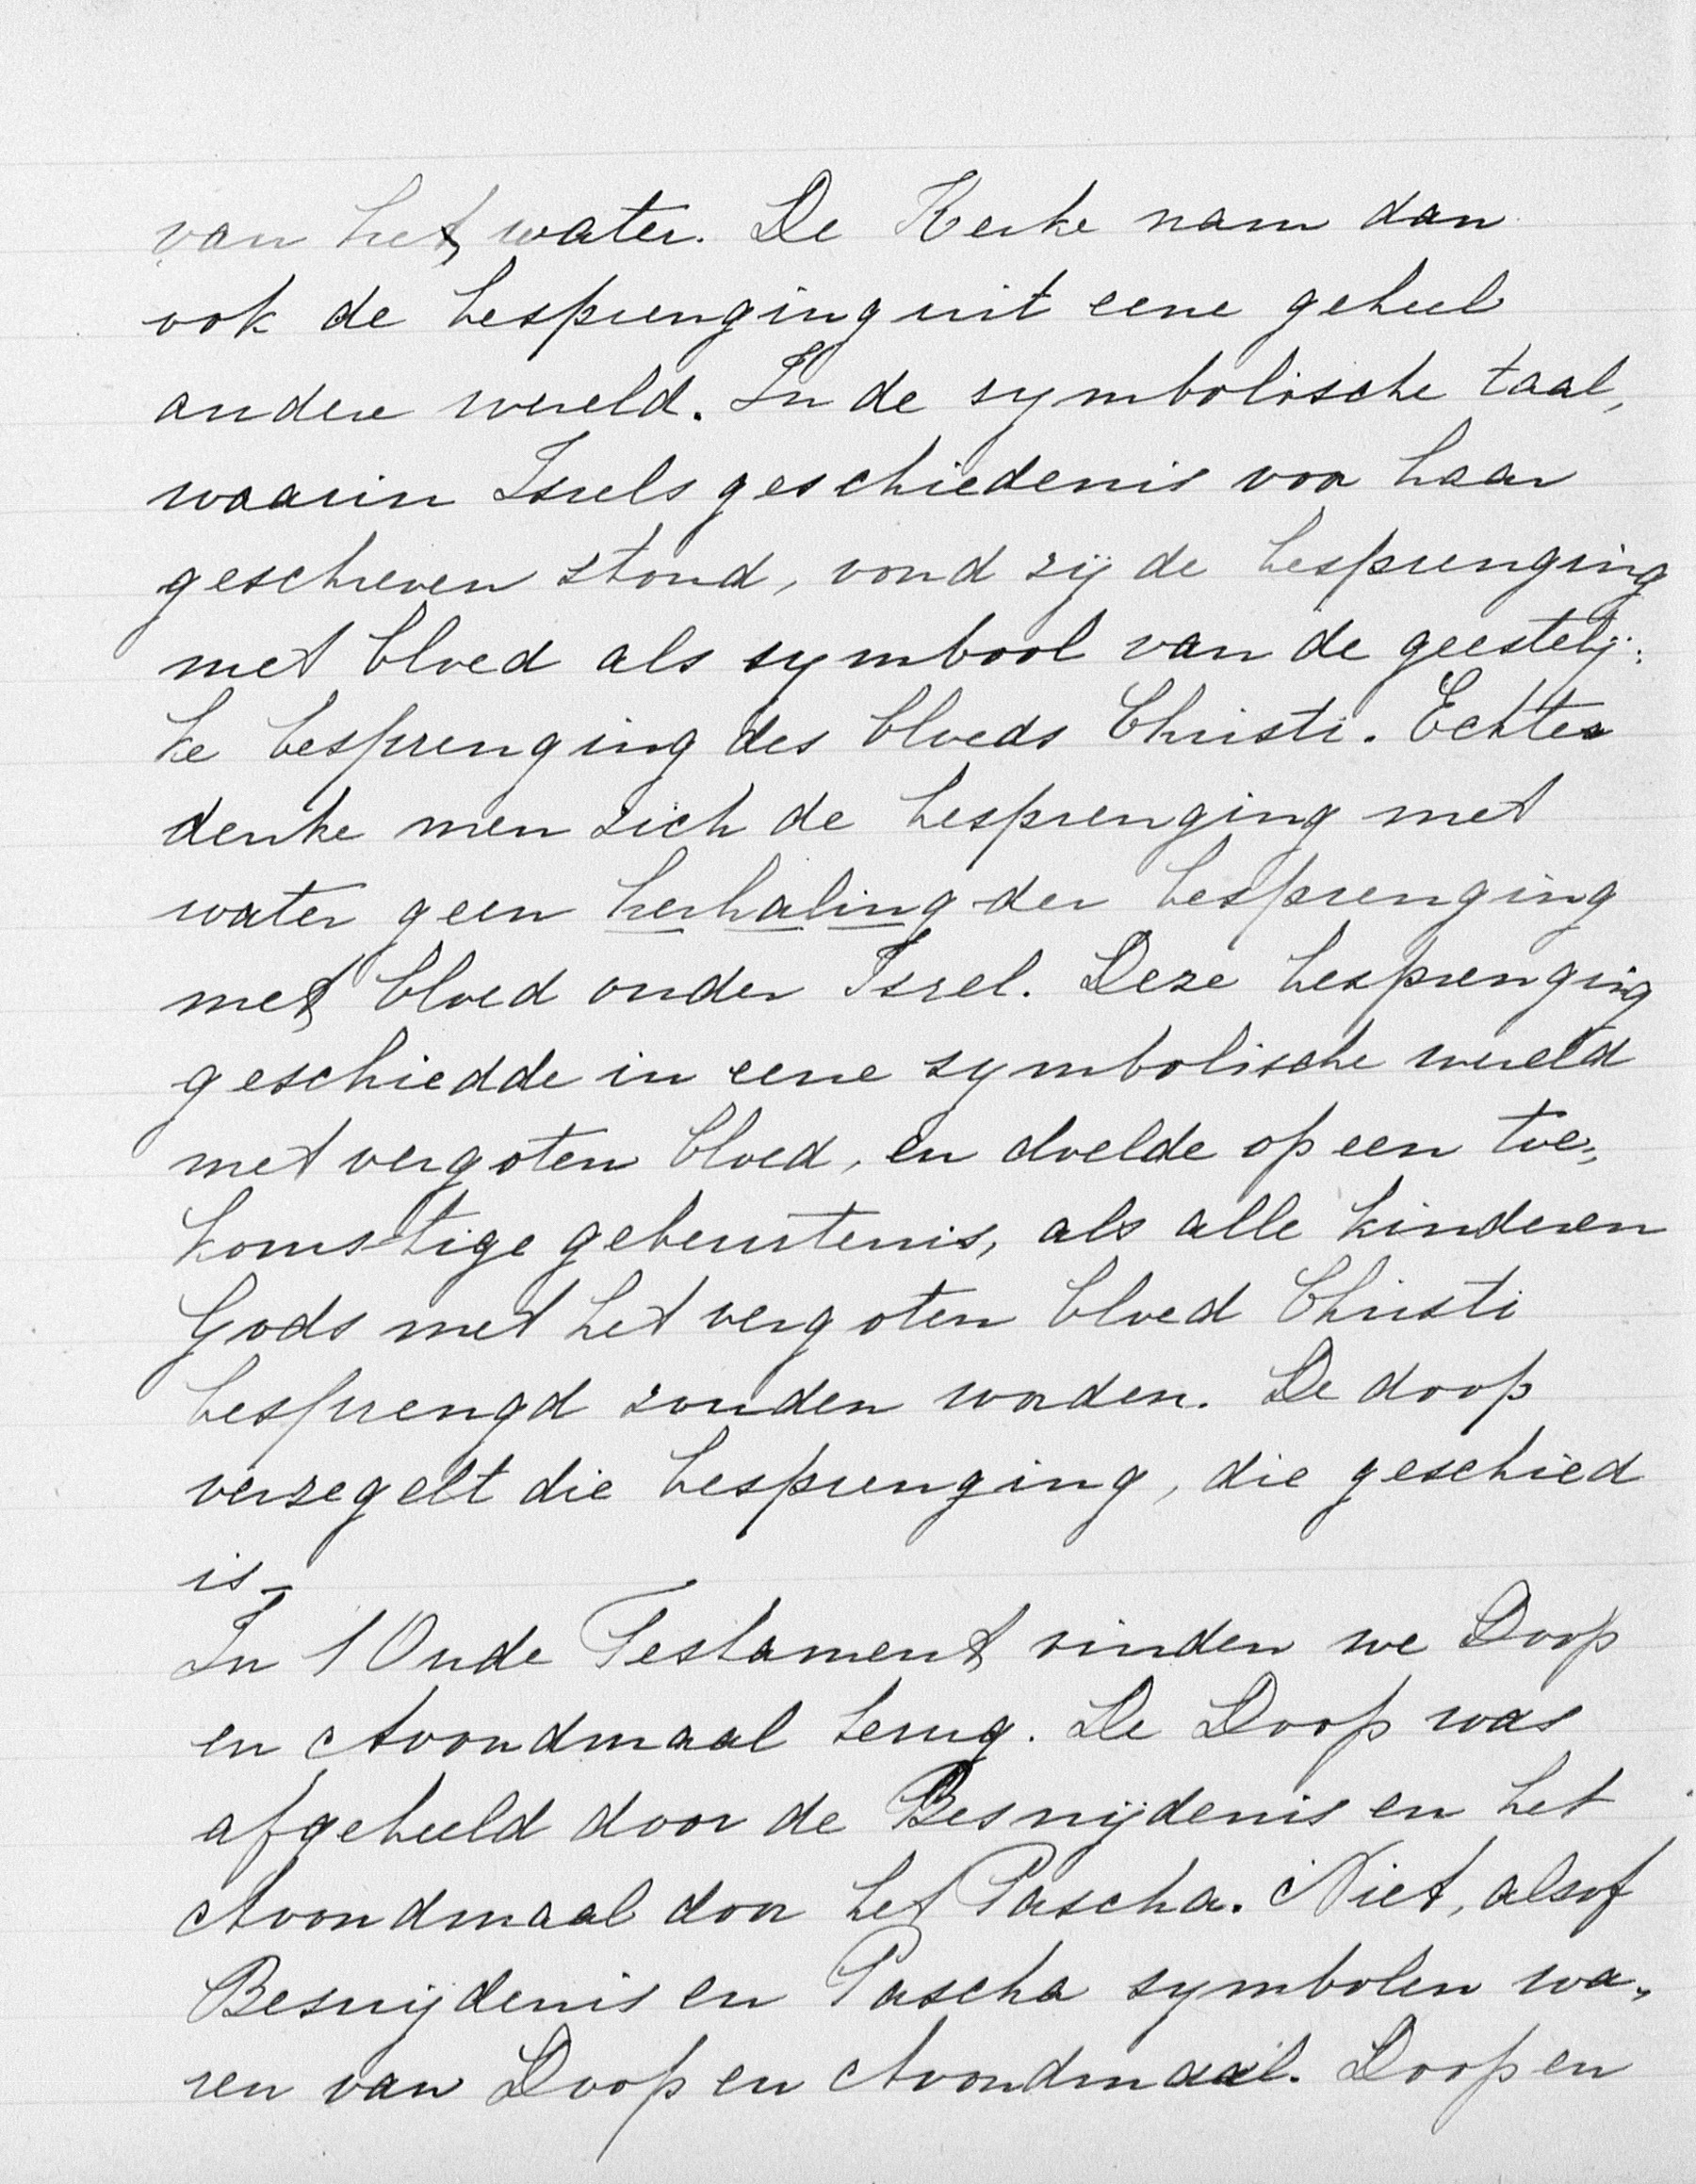 van het water. De Kerke nam dan
ook de besprenging uit eene geheel
andere wereld. In de symbolische taal,
waarin Isrels geschiedenis voor haar
geschreven stond, vond zij de besprenging
met bloed als symbool van de geestelij:
ke besprenging des bloeds Christi. Echter
denke men zich de besprenging met
water geen herhaling der besprenging
met bloed onder Isrel. Deze besprenging
geschiedde in eene symbolische wereld
met vergoten bloed, en doelde op een toe:,
komstige gebeurtenis, als alle kinderen
Gods met het vergoten bloed Christi
besprengd zouden worden. De doop
verzegelt die besprenging, die geschied
is -
In 't Oude Testament vinden we Doop
en Avondmaal terug. De Doop was
afgebeeld door de Besnijdenis en het
Avondmaal door het Pascha. Niet, alsof
Besnijdenis en Pascha symbolen wa,,
ren van Doop en Avondmaal. Doop en